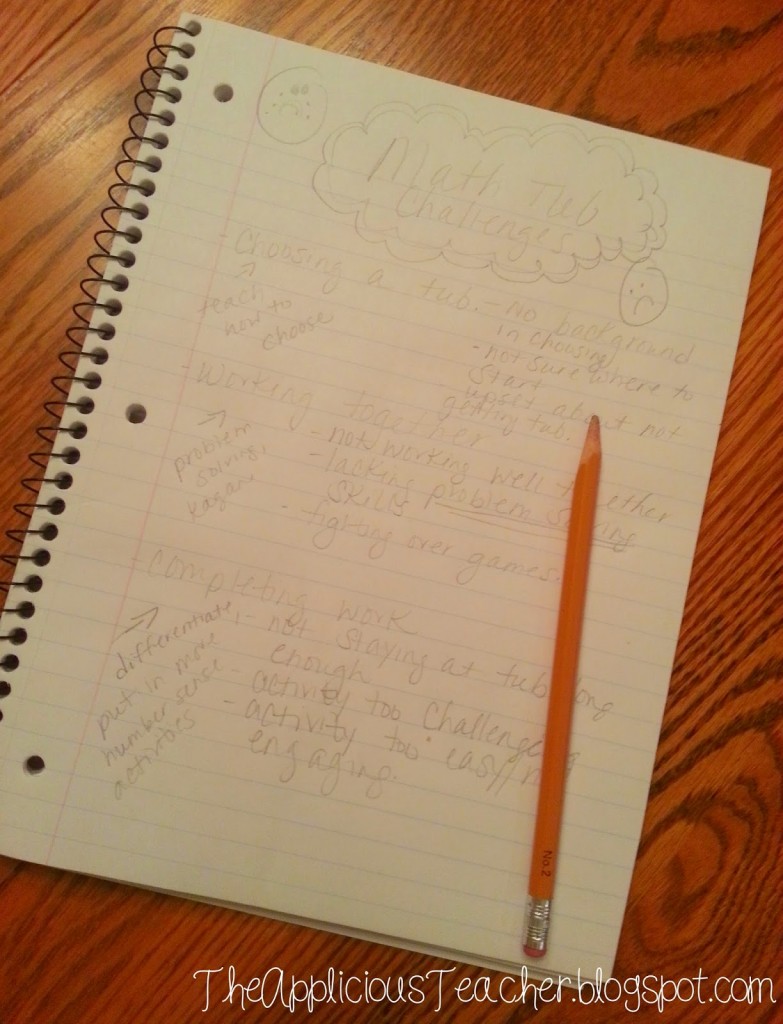 Math Tub
Challenges
- Choosing a tub. - No background
in choosing
- not sure where to
start
upset about not
getting tub.
teach
how to
choose
- Working together
- not working well t ether
- lacking problem solving
skills
- fighting over games.
problem
solving,
Kagan.
- Completing work
- not staying at tub long
enough
- activity too challenging
- activity too easy/
engaging.
differentiate,
put in more
number sense
activities
No.2
TheAppliciousTeacher.blogspot.com